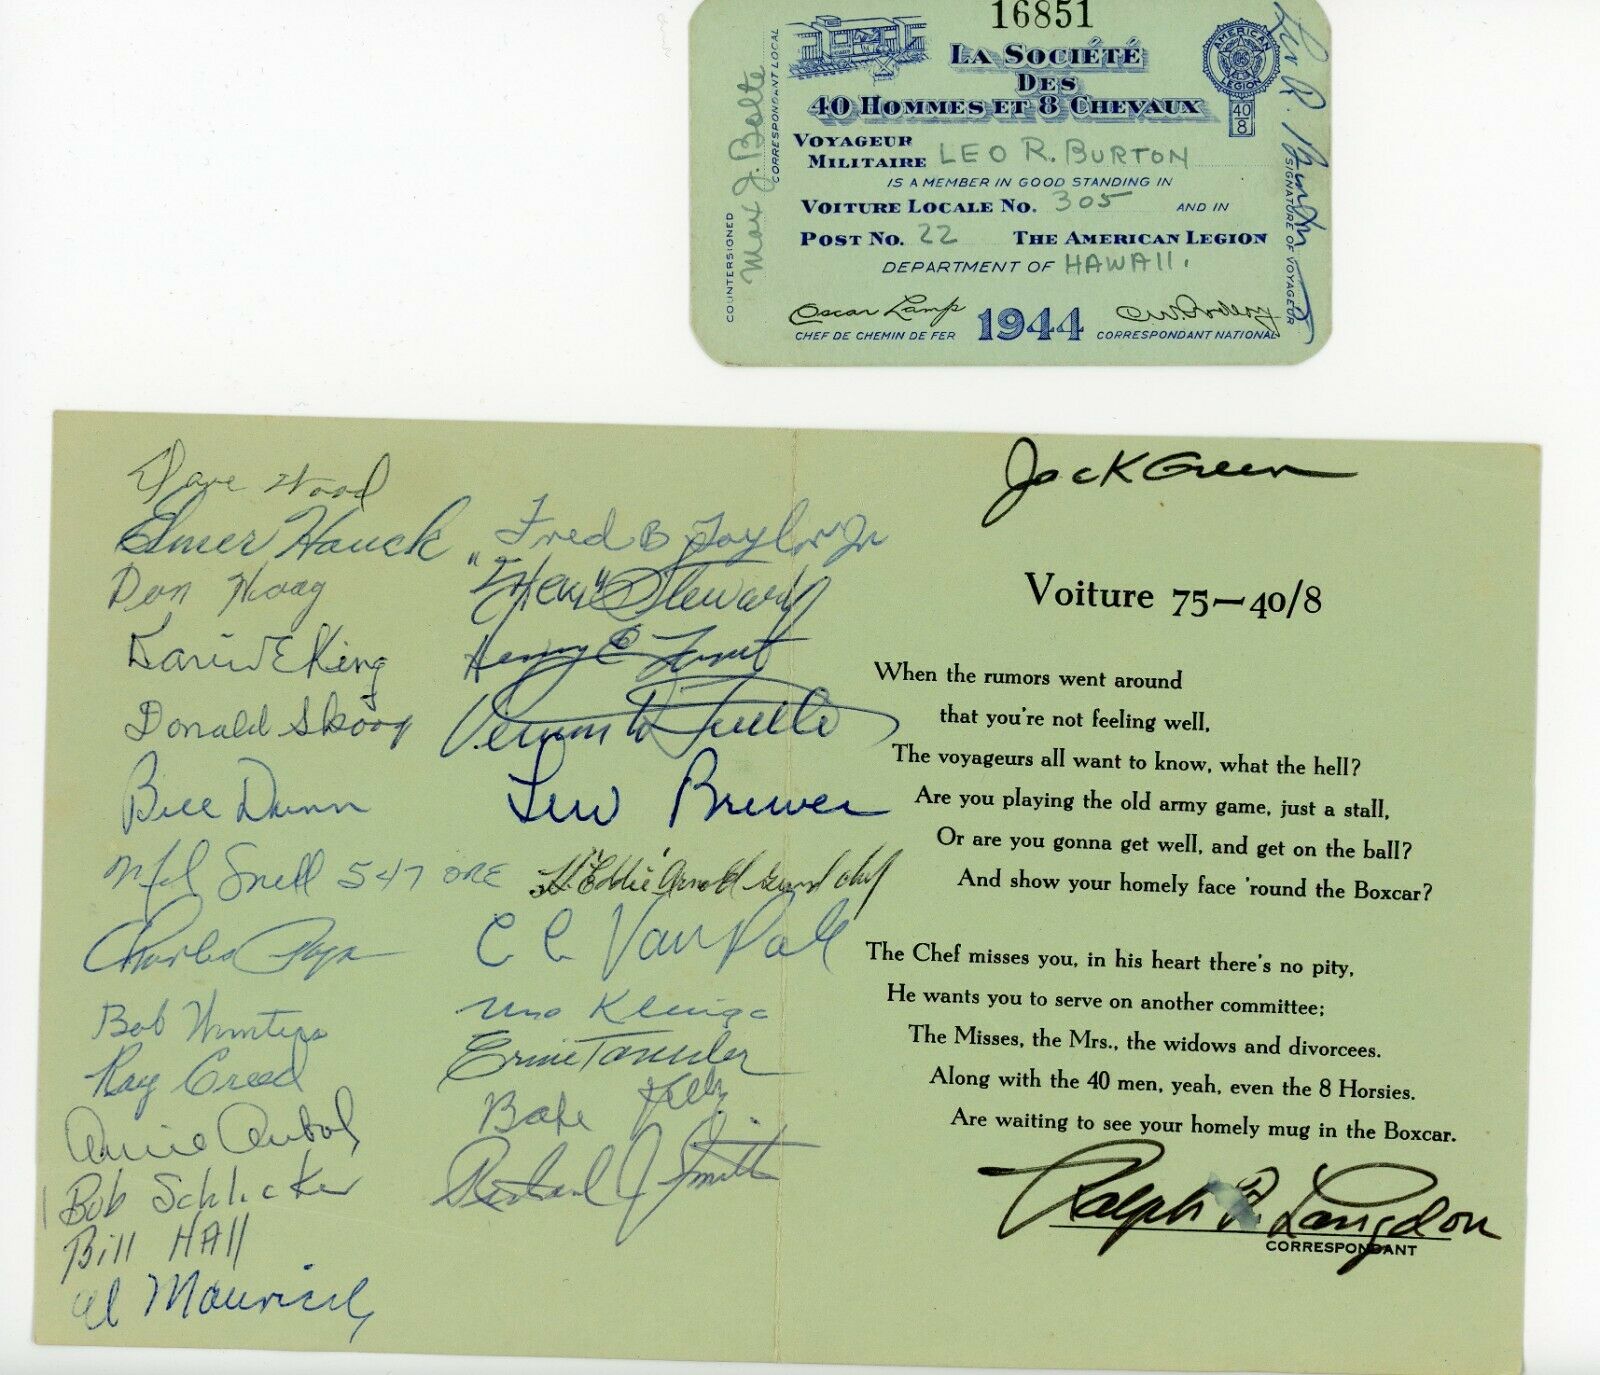 16851
LA SOCIÉTÉ
DES
40 HOMMES ET 8 CHEVAUX
AMERICAN
LEGION
40
8
VOYAGEUR
MILITAIRE LEO R. BURTON
IS A MEMBER IN GOOD STANDING IN
VOITURE LOCALE NO. 305 AND IN
POST NO. 22 THE AMERICAN LEGION
DEPARTMENT OF HAWAII.
Oscar Lamp 1944
CHEF DE CHEMIN DE FER CORRESPONDANT NATIONAL
COUNTERSIGNED
Max J. Bolte
CORRESPONDANT LOCAL
Leo R. Burton
SIGNATURE OF VOYAGEUR
Dave Wood
Elmer Hauck
Don Hoag
King
Donald Skoog
Bill Dunn
Snell 547 ORE
Charles
Bob Winters
Ray Creed
Arnie
Bob Schlicker
Bill HAll
Al
Fred B Taylor Jr
Stewart
Henry E
Vernon
Lew Brewer
"Eddie" Arnold
C C Van
Uno
Ernie
Babe Kelly
Richard J. Smith
Jack Green
Voiture 75—40/8
When the rumors went around
that you're not feeling well,
The voyageurs all want to know, what the hell?
Are you playing the old army game, just a stall,
Or are you gonna get well, and get on the ball?
And show your homely face 'round the Boxcar?
The Chef misses you, in his heart there's no pity,
He wants you to serve on another committee;
The Misses, the Mrs., the widows and divorcees.
Along with the 40 men, yeah, even the 8 Horsies.
Are waiting to see your homely mug in the Boxcar.
Ralph R. Langdon
CORRESPONDANT